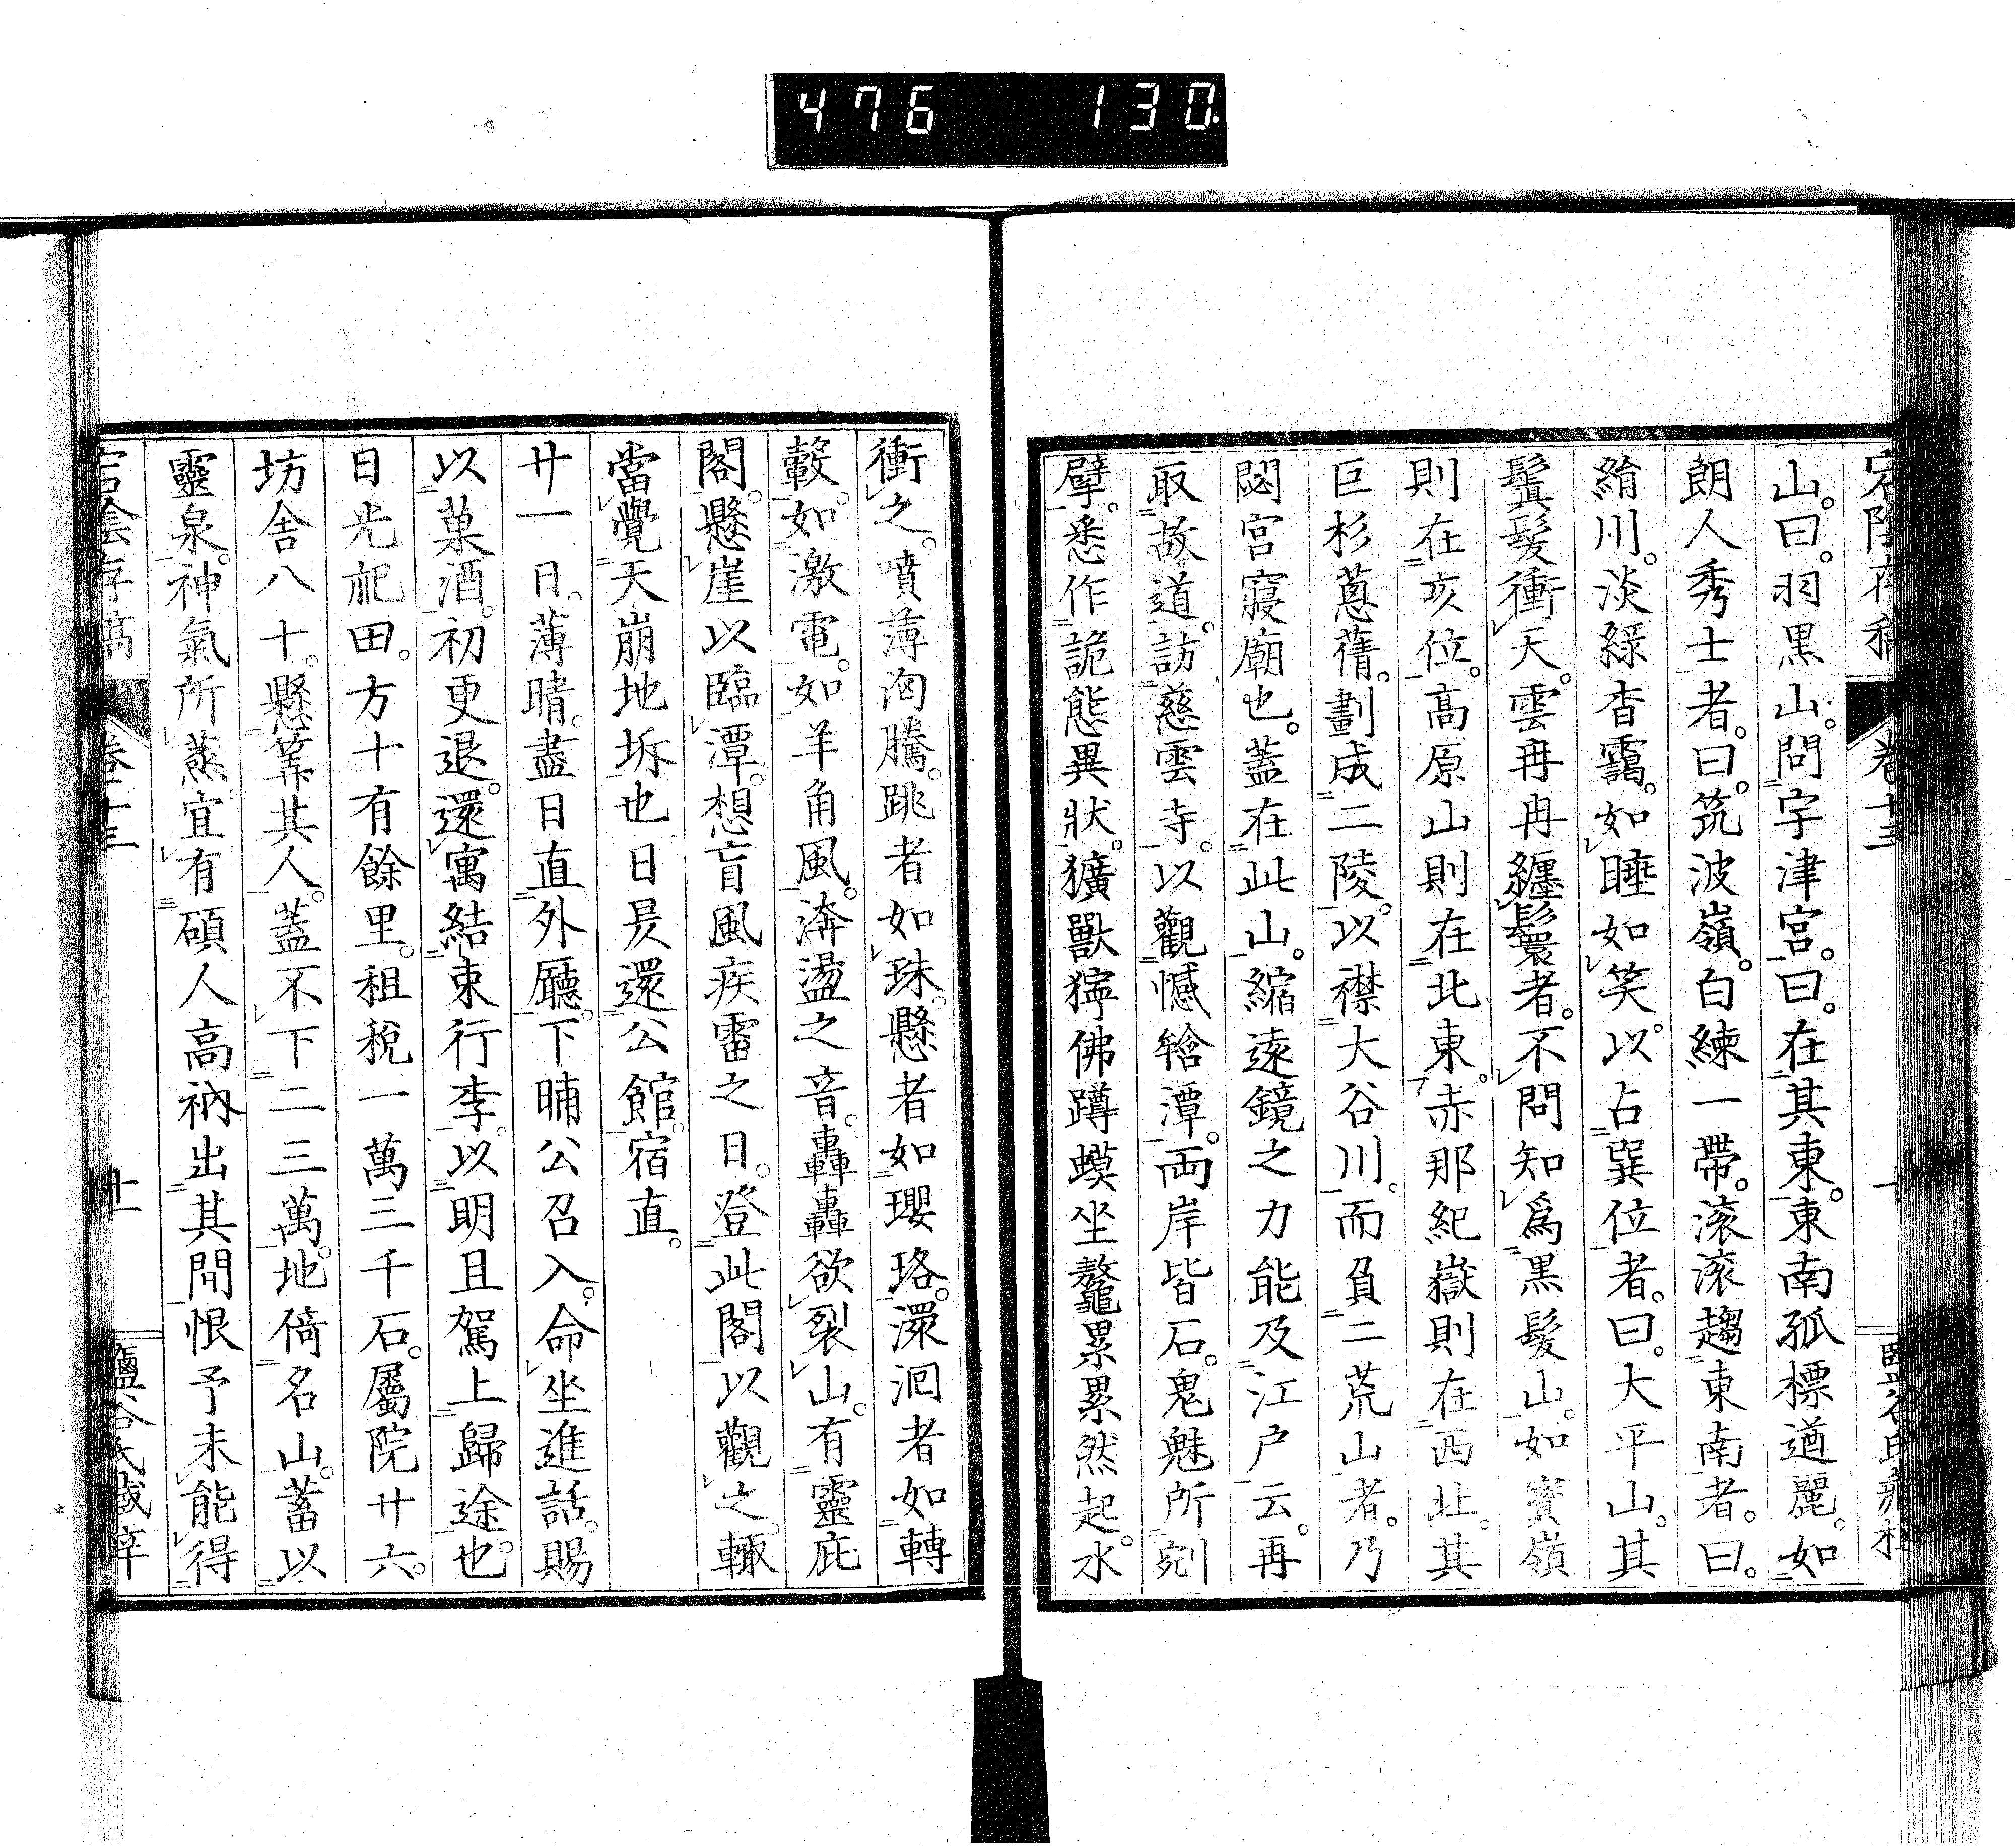 476 130.
宕陰存稿 卷十三
山。曰。羽黒山。問宇津宮。曰。在其東。東南孤標遒麗。如
朗人秀士者。曰。筑波嶺。白練一帶。滚滚趨東南者。曰。
絹川。淡緑杳靄。如睡如笑。以占巽位者。曰。大平山。其
鬒髮衝天。雲冉冉纏鬟者。不問知爲黒髮山。如寳嶺
則在亥位。高原山則在北東。赤那紀嶽則在西北。其
巨杉蔥蒨。劃成二陵。以襟大谷川。而負二荒山者。乃
閟宮寢廟也。蓋在此山。縮遠鏡之力能及江户云。再
取故道。訪慈雲寺。以觀憾𤄃潭。両岸皆石。鬼魅所剜
擘。悉作詭態異狀。獷獸獰佛蹲蟆坐鼇累累然起。水
衝之。噴薄洶騰。跳者如珠。懸者如瓔珞。濴洄者如轉
轂。如激電。如羊角風。渀盪之音。轟轟欲裂山。有靈庇
閣。懸崖以臨潭。想盲風疾雷之日。登此閣以觀之。輙
當覺天崩地坼也日昃還公館。宿直。
廿一日。薄晴。盡日直外廳。下晡公召入。命坐進話。賜
以菓酒。初更退。還寓結束行李。以明且駕上歸途也。
日光祀田。方十有餘里。租税一萬三千石。屬院廿六。
坊舎八十。懸筭其人。蓋不下二三萬。地倚名山。蓄以
靈泉。神氣所蒸。宜有碩人高衲出其間恨予未能得
宕陰存稿 卷十三 廿一 鹽谷氏藏梓